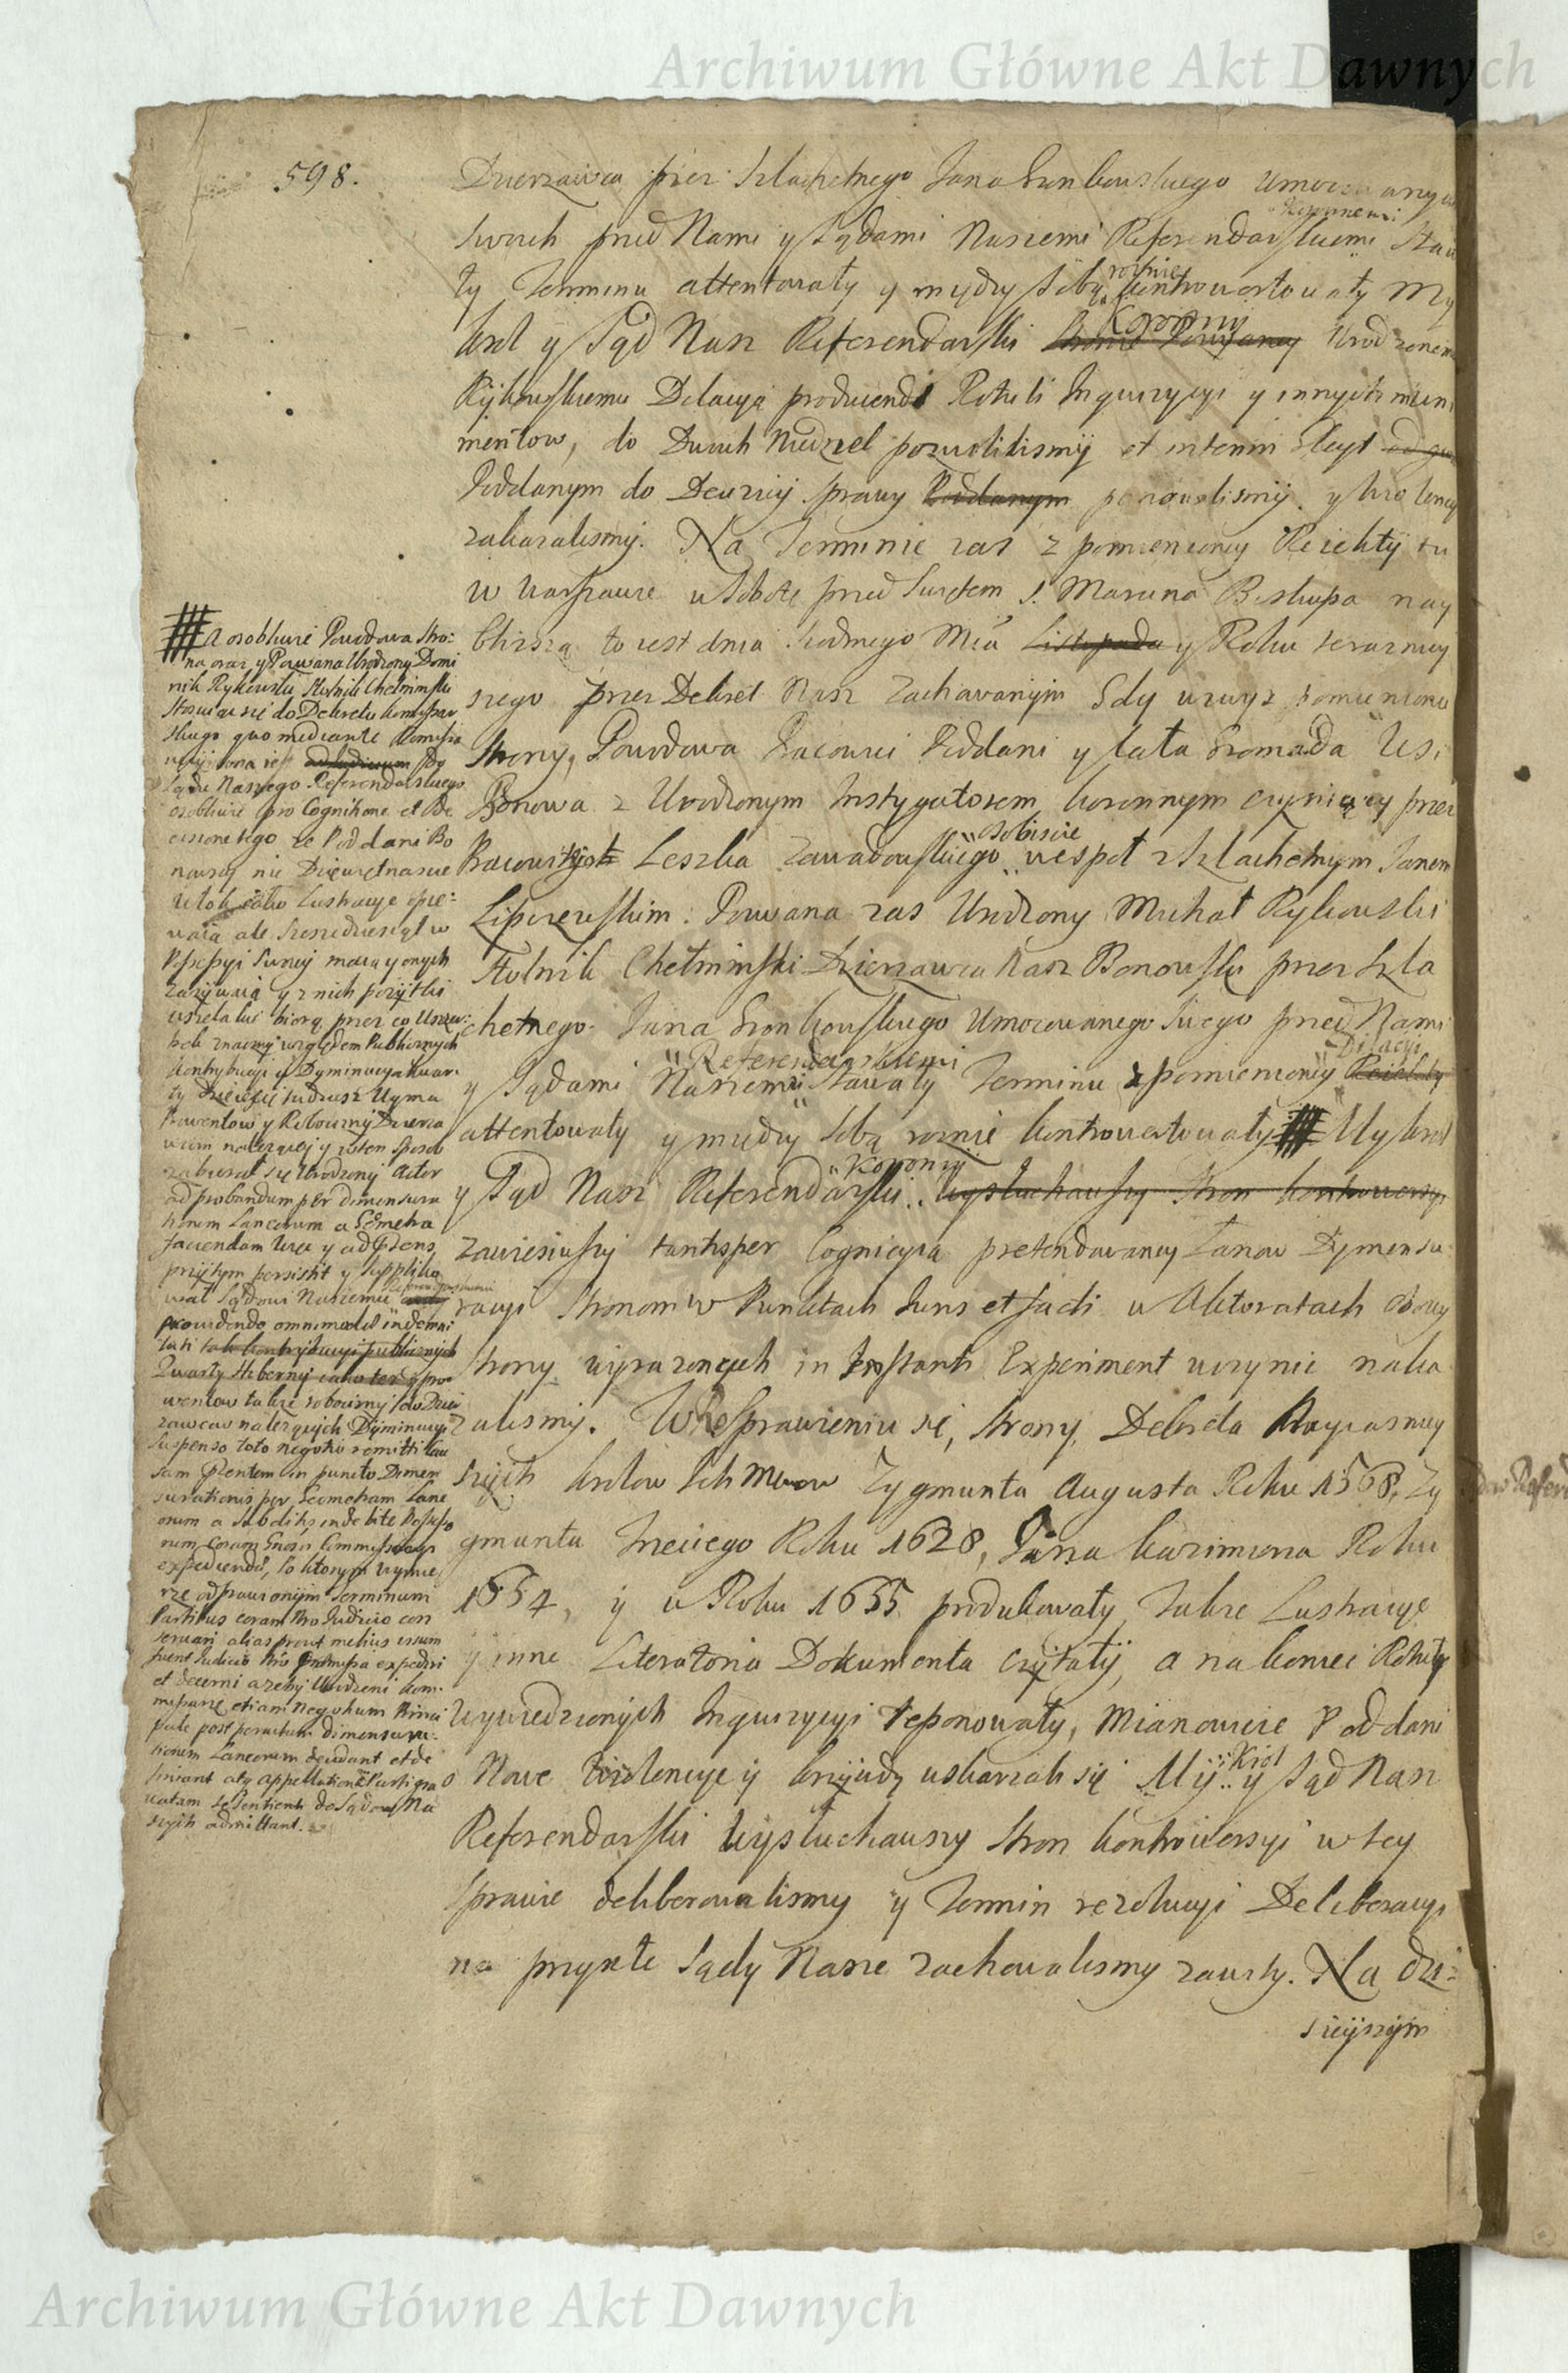 Archiwum Główne Akt Dawnych
598.
Dzierzawca przez Szlachetnego Jana Gronkowskiego
Koronnemi
Swoich przed Nami y Sądami Naszemi Referendarskiemi
roznie
ty Terminu attentowały y między sobą kontrowertowały My
Koronny
krol y Sąd Nasz Referendarski Urodzonemu
Rykowskiemu Dilacyą producendi Rotuli Inquizycyi y innych muni
mentow, do Dwuch Niedziel pozwolilismy et interim Gleyt
Poddanym do Decyzij sprawy Poddanym ponowilismy
zakazalismy. Na Terminie zas z pomienioney Reiekty tu
w Warszawie w Sobotę przed Swiętem S. Marcina Biskupa nay
blizszą to iest dnia siodmego Mca Listopada y Roku terazniey
szego przez Dekret Nasz Zachowanym Gdy wzwyz pomienione
Strony, Powodowa Pracowici Poddani y cała Gromada Wsi
Bonowa z Urodzonym Instygatorem koronnym czyniący przez
osobiscie
Pracowitego Leszka Zawadowskiego wespoł z Szlachetnym Janem
Lipczewskim. Pozwana zas Urodzony Michał Rykowski
Stolnik Chełminski Dzierzawca Nasz Bonowski przez Szla
chetnego Jana Gronkowskiego Umocowanego swego przed Nami
Referendarskiemi
Dilacyi
y Sądami Naszemi Stawały Terminu z pomienioney Reiekty
attentowały y między sobą roznie kontrowertowały # My krol
Koronny
y Sąd Nasz Referendarski wysłuchawszy Stron kontrowersyi
zawiesiwszy tantisper Cognicyią pretendowaney Łanow Dymensu
racyi Stronom w Punktach Juris et facti w Aktoratach obowy
Strony wyrazonych in Instanti Experiment uczynic naka
zalismy. W Rosprawieniu się, Strony, Dekreta Nayiasniey
szych krolow Ich Mciow Zygmunta Augusta Roku 1568, Zy
gmunta Trzeciego Roku 1628, Jana kazimierza Roku
1654, y w Roku 1655 produkowały, Takze Lustracye
y inne Literatoria Dokumenta czytały, a na koniec Rotuły
Wywiedzionych Inquizycyi reponowały, mianowicie Poddani
Krol
o Nowe Wiolencye y krzywdy uskarzali się My y Sąd Nasz
Referendarski Wysłuchawszy Stron kontrowersyi w tey
Sprawie deliberowalismy y Termin rezolucyi Deliberacyi
na przyszłe Sądy Nasze zachowalismy zawity. Na dzi:
sieyszym
# A osobliwie Powodowa Stro:
na oraz y Pozwana Urodzony Domi
nik Rykowski Stolnik Chełminski
Stosuiąc się do Dekretu kommissar
skiego quo mediante
Sądu Naszego Referendarskiego
osobliwie pro Cognitione et De
cisione tego ze Poddani Bo
nowscy nie Dziewiętnascie
Włok iako Lustracye opie:
waią ale szescdziesiąt w
Possessyi swoiey maią y onych
zazywaią y z nich pozytki
wszelakie biorą przez co
znaczny względem Publicznych
kontrybucyi y Dyminucya kwar
ty
Prowentow y Robocizny Dzierza
wcom nalezącey y
zabierał się Urodzony Actor
ad probandum per dimensura
tionem Laneorum a Geometra
faciendam
przytym persistit y suppliko
wał Sądowi Naszemu
providendo omnimodae indemni
tati
wentow takze robocizny
zawcow nalezących Dyminucyi
Suspenso toto negotio remitti
sam Praesentem in puncto Dimen
surationis per Geometram Lane
orum a Subditis indebite Possesso
rum coram
expediendo, po ktorym wymie
rze odprawionym Terminum
Partibus coram Nostro Judicio con
servari alias prout melius visum
fuerit Judicio Nostro Praemissa expediri
et decerni azeby Urodzeni kom:
missarze etiam Negotium Princi
pale post peractam dimensura:
tionem Laneorum decidant et de
finiant aty appellationem Parti gra
vatam se sentienti do Sądow Na
szych admittant.
Archiwum Główne Akt Dawnych